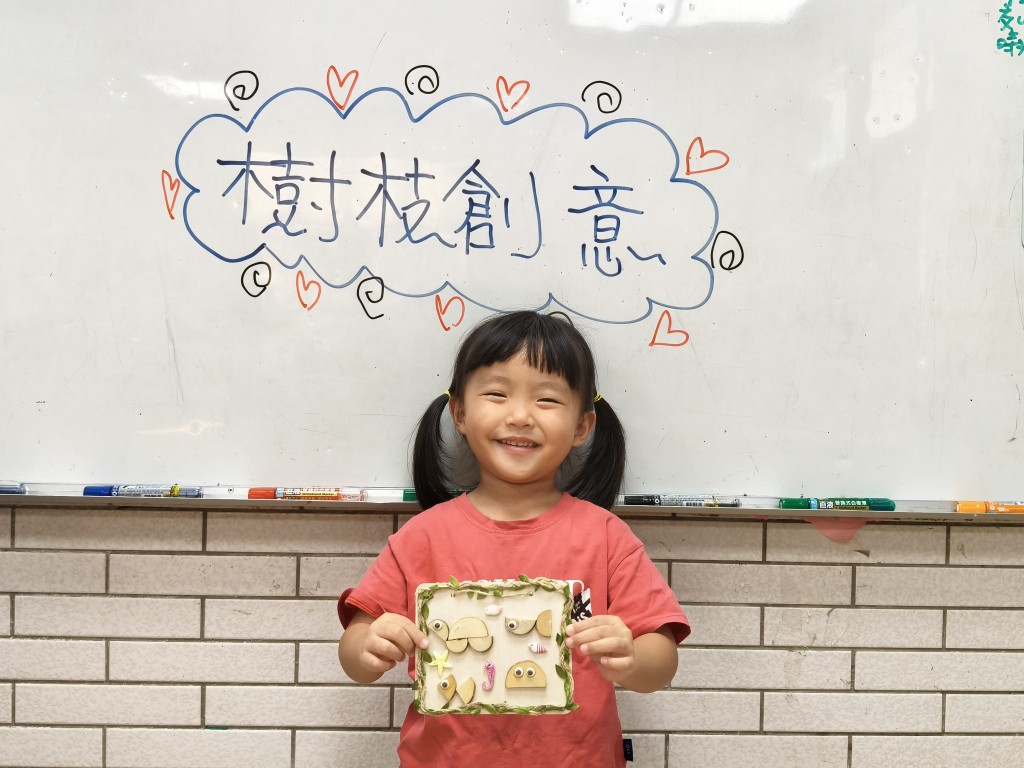 樹枝創意